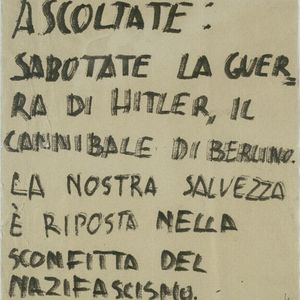 ASCOLTATE:
SABOTATE LA GUER-
RA DI HITLER, IL
CANNIBALE DI BERLINO.
LA NOSTRA SALVEZZA
È RIPOSTA NELLA
SCONFITTA DEL
NAZIFASCISMO.